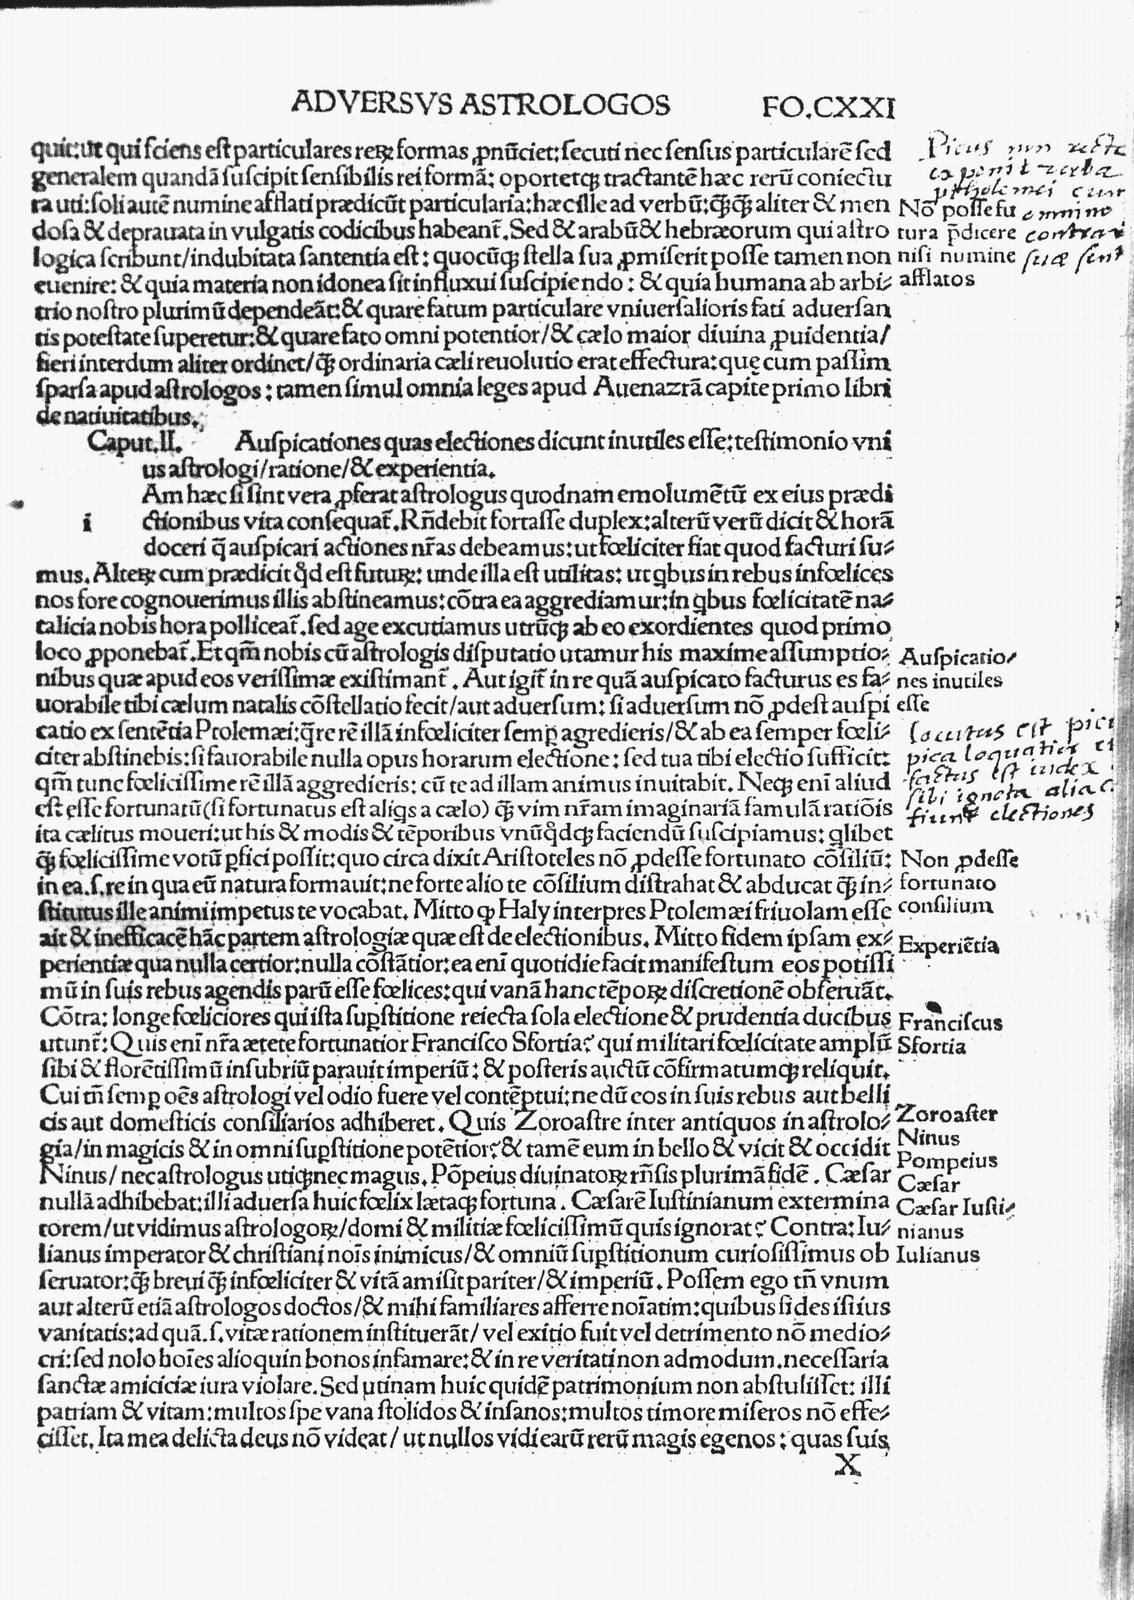 ADVERSVS ASTROLOGOS FO.CXXI
quit:ut qui sciens est particulares reꝝ formas ꝓnūciet:secuti nec sensus particularē sed
generalem quandā suscipit sensibilis rei formā: oportetꝙ tractantē hæc rerū coniectu
ra uti:soli autē numine afflati prædicūt particularia:hæc ille ad verbū:ꝙ̄ꝙ̄ aliter & men
dosa & deprauata in vulgatis codicibus habeant̄.Sed & arabū & hebræorum qui astro
logica scribunt/indubitata santentia est: quocūꝙ stella sua ꝓmiserit posse tamen non
euenire: & quia materia non idonea sit influxui suscipiendo: & quia humana ab arbi⸗
trio nostro plurimū dependeāt:& quare fatum particulare vniuersalioris fati aduersan
tis potestate superetur:& quare fato omni potentior/& cælo maior diuina ꝓuidentia/
fieri interdum aliter ordinet/ꝙ̄ ordinaria cæli reuolutio erat effectura:quę cum passim
sparsa apud astrologos: tamen simul omnia leges apud Auenazrā capite primo libri
de natiuitatibus.
Caput.II. Auspicationes quas electiones dicunt inutiles esse:testimonio vni
us astrologi/ratione/& experientia.
i Am hæc si sint vera ꝓferat astrologus quodnam emolumētū ex eius prædi
ctionibus vita consequat̄.Rn̄debit fortasse duplex:alterū verū dicit & horā
doceri q̄ auspicari actiones nr̄as debeamus:ut fœliciter fiat quod facturi su⸗
mus.Alteꝝ cum prædicit qd est futuꝝ: unde illa est utilitas: ut qbus in rebus infœlices
nos fore cognouerimus illis abstineamus:cōtra ea aggrediamur:in qbus fœlicitatē na⸗
talicia nobis hora polliceat̄.sed age excutiamus utrūꝙ ab eo exordientes quod primo
loco ꝓponebat̄.Et qm̄ nobis cū astrologis disputatio utamur his maxime assumptio⸗
nibus quæ apud eos verissimæ existimant̄. Aut igit̄ in re quā auspicato facturus es fa⸗
uorabile tibi cælum natalis cōstellatio fecit/aut aduersum: si aduersum nō ꝓdest auspi
catio ex sentētia Ptolemæi:q̄re rē illā infœliciter semꝑ agredieris/& ab ea semper fœli⸗
citer abstinebis:si fauorabile nulla opus horarum electione: sed tua tibi electio sufficit:
qm̄ tunc fœlicissime rē illā aggredieris: cū te ad illam animus inuitabit. Neꝙ enī aliud
est esse fortunatū(si fortunatus est aliqs a cælo) ꝙ̄ vim nr̄am imaginariā famulā ratiōis
ita cælitus moueri:ut his & modis & tēporibus vnūqdꝙ faciendū suscipiamus: qlibet
ꝙ̄ fœlicissime votū ꝑfici possit:quo circa dixit Aristoteles nō ꝓdesse fortunato cōsiliū:
in ea.s.re in qua eū natura formauit:ne forte alio te cōsilium distrahat & abducat ꝙ̄ in⸗
stitutus ille animi impetus te vocabat. Mitto ꝙ Haly interpres Ptolemæi friuolam esse
ait & inefficacē hāc partem astrologiæ quæ est de electionibus. Mitto fidem ipsam ex⸗
perientiæ qua nulla certior:nulla cōstātior:ea enī quotidie facit manifestum eos potissi
mū in suis rebus agendis parū esse fœlices:qui vanā hanc tēpoꝝ discretionē obseruāt.
Cōtra: longe fœliciores qui ista suꝑstitione reiecta sola electione & prudentia ducibus
utunt̄: Quis enī nr̄a ætete fortunatior Francisco Sfortia? qui militari fœlicitate amplū
sibi & florētissimū insubriū parauit imperiū: & posteris auctū cōfirmatumꝙ reliquit.
Cui tn̄ semꝑ oēs astrologi vel odio fuere vel contēptui:ne dū eos in suis rebus aut belli
cis aut domesticis consiliarios adhiberet. Quis Zoroastre inter antiquos in astrolo⸗
gia/in magicis & in omni suꝑstitione potētior? & tamē eum in bello & vicit & occidit
Ninus/ nec astrologus utiꝙ nec magus. Pōpeius diuinatoꝝ rn̄sis plurimā fidē. Cæsar
nullā adhibebat:illi aduersa huic fœlix lætaꝙ fortuna. Cæsarē Iustinianum extermina
torem/ut vidimus astrologoꝝ/domi & militiæ fœlicissimū quis ignorat? Contra:Iu⸗
lianus imperator & christiani noīs inimicus/& omniū suꝑstitionum curiosissimus ob
seruator:ꝙ̄ breui ꝙ̄ infœliciter & vitā amisit pariter/& imperiū. Possem ego tn̄ vnum
aut alterū etiā astrologos doctos/& mihi familiares afferre noīatim:quibus fides istius
vanitatis:ad quā.s.vitæ rationem instituerāt/ vel exitio fuit vel detrimento nō medio⸗
cri:sed nolo hoīes alioquin bonos infamare:& in re veritati non admodum.necessaria
sanctæ amiciciæ iura violare.Sed utinam huic quidē patrimonium non abstulisset: illi
patriam & vitam:multos spe vana stolidos & insanos:multos timore miseros nō effe⸗
cisset. Ita mea delicta deus nō videat/ ut nullos vidi earū rerū magis egenos: quas suis
X
Picus non recte
exponit verba
ptholemei cum
omnino
contrar
suæ sent
Nō posse fu
tura p̄dicere
nisi numine
afflatos
Auspicatio/
nes inutiles
esse
locutus est pici
pica loquatior et
factus est iudex
sibi ignota alia
fiunt electiones
Non ꝓdesse
fortunato
consilium
Experiētia
Franciscus
Sfortia
Zoroaster
Ninus
Pompeius
Cæsar
Cæsar Iusti⸗
nianus
Iulianus